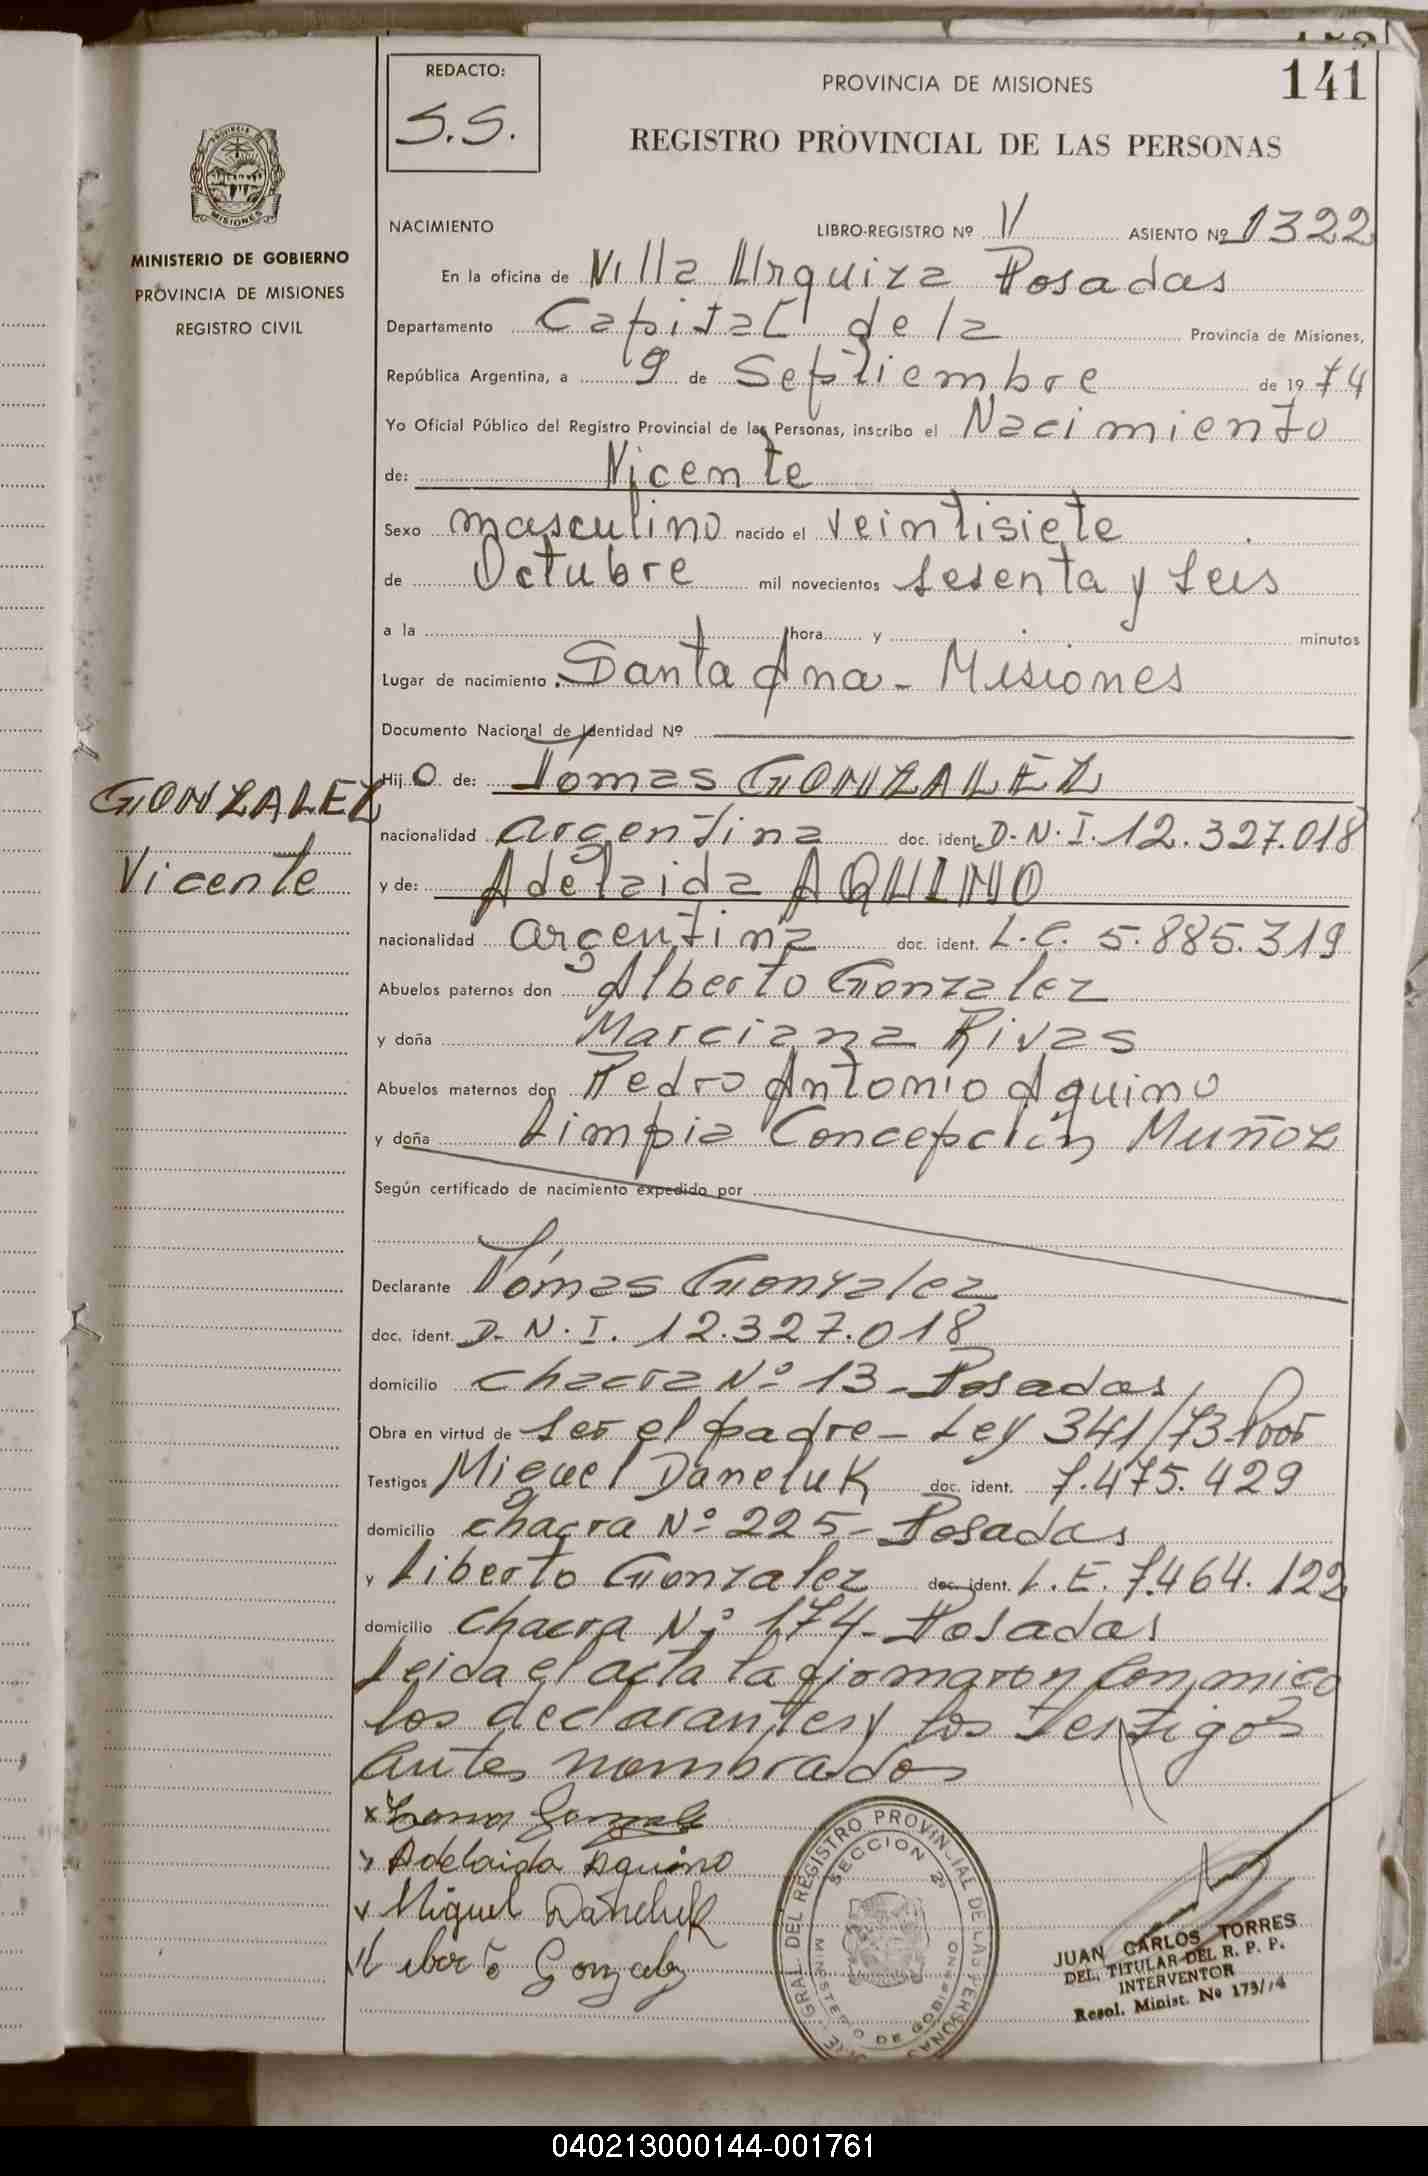 141
REDACTO:
S.S.
PROVINCIA DE MISIONES
REGISTRO PROVINCIAL DE LAS PERSONAS
MISIONES
MINISTERIO DE GOBIERNO
PROVINCIA DE MISIONES
REGISTRO CIVIL
NACIMIENTO LIBRO-REGISTRO Nº V ASIENTO Nº 1322
En la oficina de Villa Urquiza Posadas
Departamento Capital de la Provincia de Misiones,
República Argentina, a 9 de Septiembre de 1974
Yo Oficial Público del Registro Provincial de las Personas, inscribo el Nacimiento
de: Vicente
Sexo masculino nacido el veintisiete
de Octubre mil novecientos sesenta y seis
a la hora y minutos
Lugar de nacimiento Santa Ana - Misiones
Documento Nacional de Identidad Nº
Hijo de: Tomas GONZALEZ
GONZALEZ
Vicente
nacionalidad argentina doc. ident. D.N.I. 12.327.018
y de: Adelaida AQUINO
nacionalidad argentina doc. ident. L.C. 5.885.319
Abuelos paternos don Alberto Gonzalez
y doña Marciana Rivas
Abuelos maternos don Pedro Antonio Aquino
y doña Limpia Concepción Muñoz
Según certificado de nacimiento expedido por
Declarante Tomas Gonzalez
doc. ident. D.N.I. 12.327.018
domicilio chacra Nº 13 - Posadas
Obra en virtud de ser el padre - Ley 341/73
Testigos Miguel Daneluk doc. ident. 7.475.429
domicilio chacra Nº 225 - Posadas
y Liberto Gonzalez doc. ident. L.E. 7.464.122
domicilio chacra Nº 174 - Posadas
Leida el acta la firmaron conmigo
los declarantes y los testigos
antes nombrados
Adelaida Aquino
Miguel Daneluk
Liberto Gonzalez
GRAL DEL REGISTRO PROVINCIAL DE LAS PERSONAS
SECCION 2ª
MINISTERIO DE GOBIERNO
JUAN CARLOS TORRES
DEL. TITULAR DEL R. P. P.
INTERVENTOR
Resol. Minist. Nº 173/74
040213000144-001761